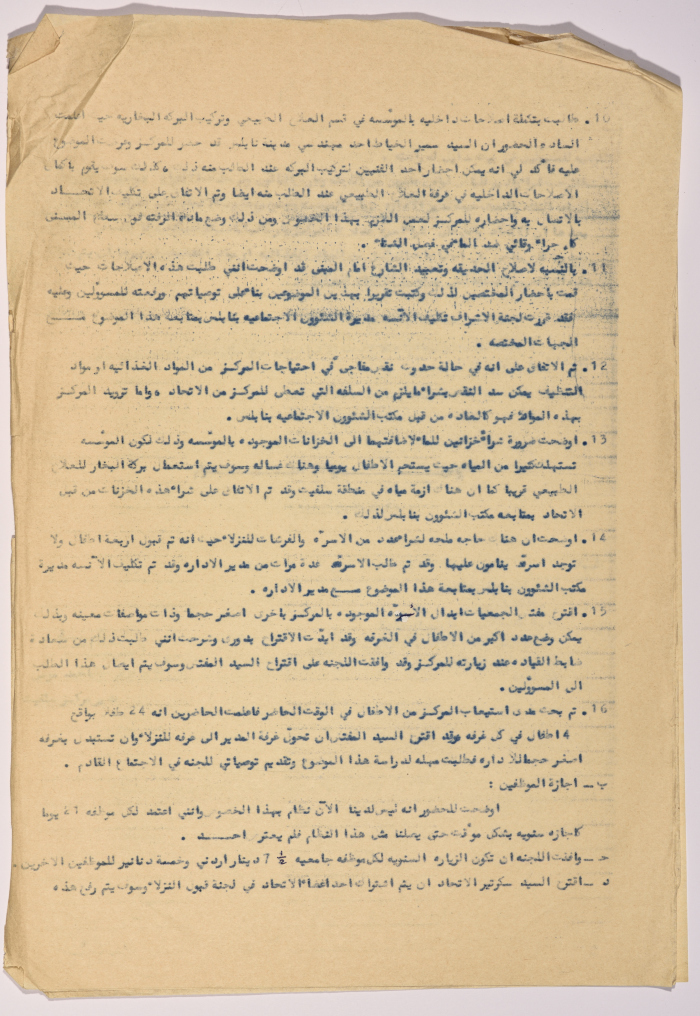 10. طالبت بتكملة اصلاحات داخليه بالمؤسسه في قسم العلاج الطبيعي وتركيب البركه البخاريه حيث اعلمت
الساده الحضور ان السيد سمير الخياط احد مهندسي مدينة نابلس قد حضر للمركز وعرضت الموضوع
عليه فأكد لي انه يمكن احضار احد الفنيين لتركيب البركه عند الطلب منه ذلك وكذلك سوف يقوم باكمال
الاصلاحات الداخليه في غرفة العلاج الطبيعي عند الطلب منه ايضا وتم الاتفاق على تكليف الاتحــاد
بالاتصال به واحضاره للمركز لعمل اللازم بهذا الخصوص ومن ذلك وضع مادة الزفته فوق سطح المبنى
كاجراء وقائي ضد الماء في فصل الشتاء .
11. بالنسبه لاصلاح الحديقه وتعبيد الشارع امام المبنى قد اوضحت انني طلبت هذه الاصلاحات حيث
قمت باحضار المختصين لذلك وكتبت تقريرا بهذين الموضوعين بناء على توصياتهم ورفعته للمسؤولين وعليه
فقد قررت لجنة الاشراف تكليف الآنسه مديرة الشئوون الاجتماعيه بنابلس بمتابعة هذا الموضوع مــع
الجهات المختصه .
12. تم الاتفاق على انه في حالة حدوث نقص مفاجىء في احتياجات المركز من المواد الغذائيه او مواد
التنظيف يمكن سد النقص بشراء ما يلزم من السلفه التي تعطى للمركز من الاتحاد واما تزويد المركز
بهذه المواد فهو كالعاده من قبل مكتب الشئوون الاجتماعيه بنابلس .
13. اوضحت ضرورة شراء خزانين للماء لاضافتهما الى الخزانات الموجوده بالمؤسسه وذلك لكون المؤسسه
تستهلك كثيرا من المياه حيث يستحم الاطفال يوميا وهناك غساله وسوف يتم استعمال بركة البخار للعلاج
الطبيعي قريبا كما ان هناك ازمة مياه في منطقة سلفيت وقد تم الاتفاق على شراء هذه الخزانات من قبل
الاتحاد بمتابعه مكتب الشئوون بنابلس لذلك .
14. اوضحت ان هناك حاجه ملحه لشراء عدد من الاسرّه والفرشات للنزلاء حيث انه تم قبول اربعة اطفال ولا
توجد اسرّه ينامون عليها وقد تم طلب الاسرّه عدة مرات من مدير الاداره وقد تم تكليف الآنسه مديرة
مكتب الشئوون بنابلس بمتابعة هذا الموضوع مــع مدير الاداره .
15. اقترح مفتش الجمعيات ابدال الأسرّه الموجوده بالمركز باخرى اصغر حجما وذات مواصفات معينه وبذلك
يمكن وضع عدد اكبر من الاطفال في الغرفه وقد ايدت الاقتراح بدوري وشرحت انني طلبت ذلك من سعادة
ضابط القياده عند زيارته للمركز وقد وافقت اللجنه على اقتراح السيد المفتش وسوف يتم ايصال هذا الطلب
الى المسوؤلين .
16. تم بحث مدى استيعاب المركز من الاطفال في الوقت الحاضر فاعلمت الحاضرين انه 24 طفلا بواقع
4 اطفال في كل غرفه وقد اقترح السيد المفتش ان تحول غرفة المدير الى غرفه للنزلاء وان تستبدل بغرفه
اصغر حجما للاداره فطلبت مهله لدراسة هذا الموضوع وتقديم توصياتي للجنه في الاجتماع القادم .
ب ــ اجازة الموظفين :
اوضحت للحضور انه ليس لدينا الآن نظام بهذا الخصوص وانني اعتمد لكل موظفه 21 يوما
كاجازه سنويه بشكل مؤقت حتى يصلنا مثل هذا النظام فلم يعترض احــد .
حـ ــ وافقت اللجنه ان تكون الزياده السنويه لكل موظفه جامعيه 7½ دينار اردني وخمسة دنانير للموظفين الآخرين .
د ــ اقترح السيد سكرتير الاتحاد ان يتم اشتراك احد اعضاء الاتحاد في لجنة قبول النزلاء وسوف يتم رفع هذه